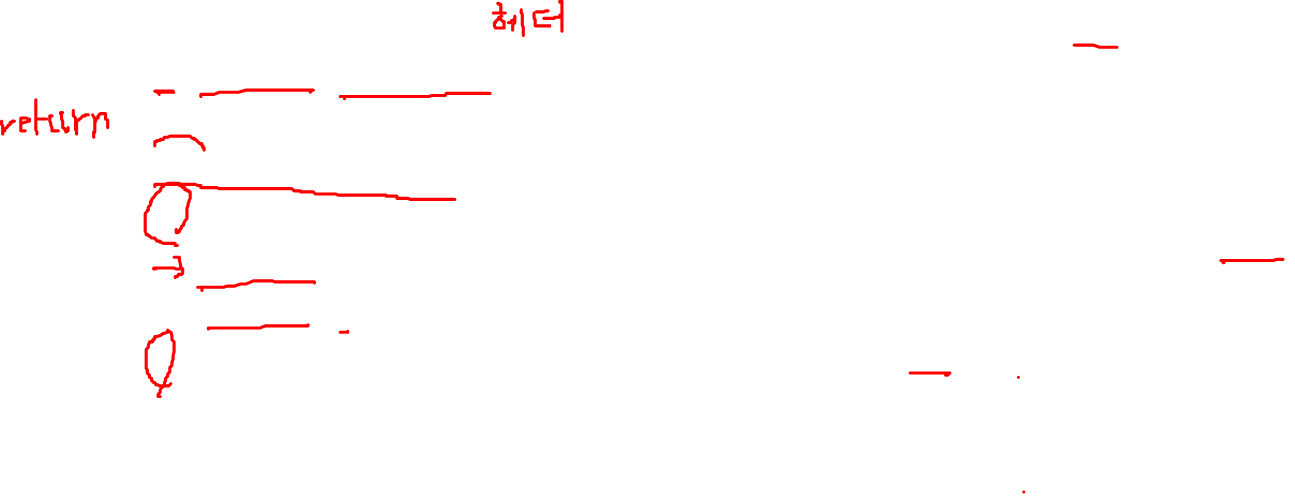 헤더
return